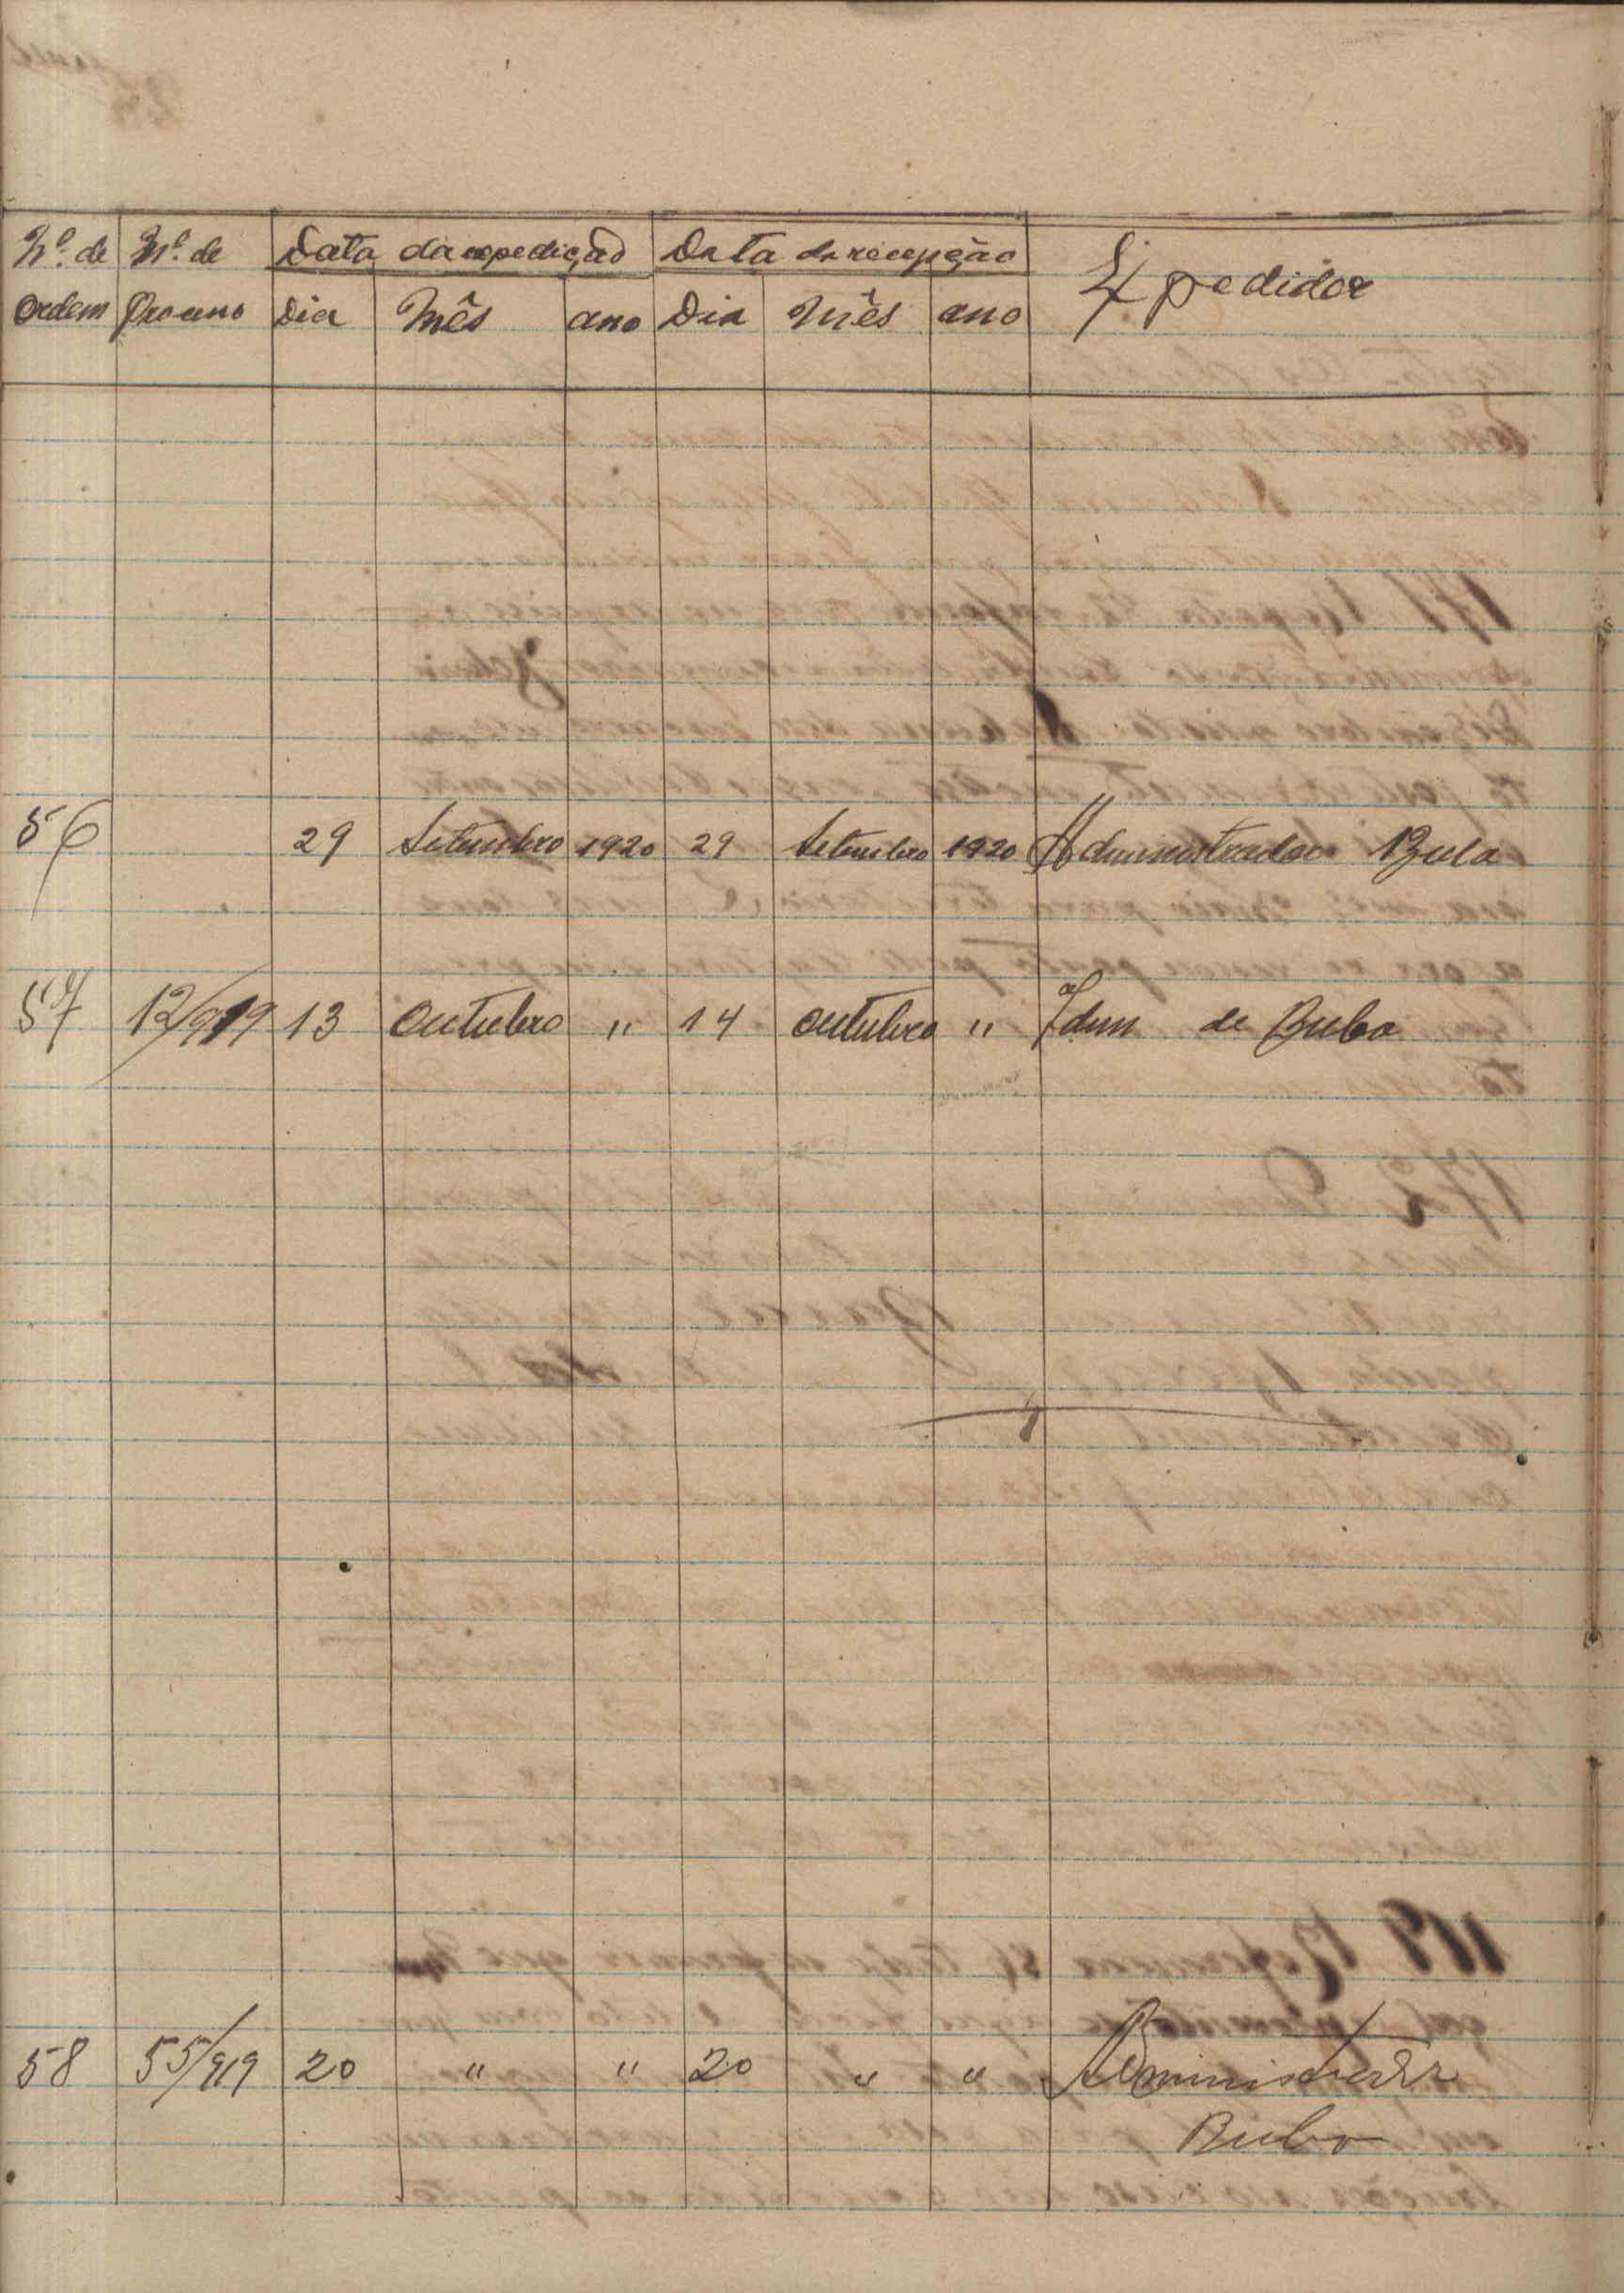 Nº. de Nº. de Data da expedição Data da recepção Expedidor
Ordem Dia Mês ano Dia Mês ano
56 29 Setembro 1920 29 Setembro 1920 Administrador Buba
57 12/919 13 Outubro " 14 Outubro " Idem de Buba
58 55/919 20 " " 20 " " Administrador
Buba